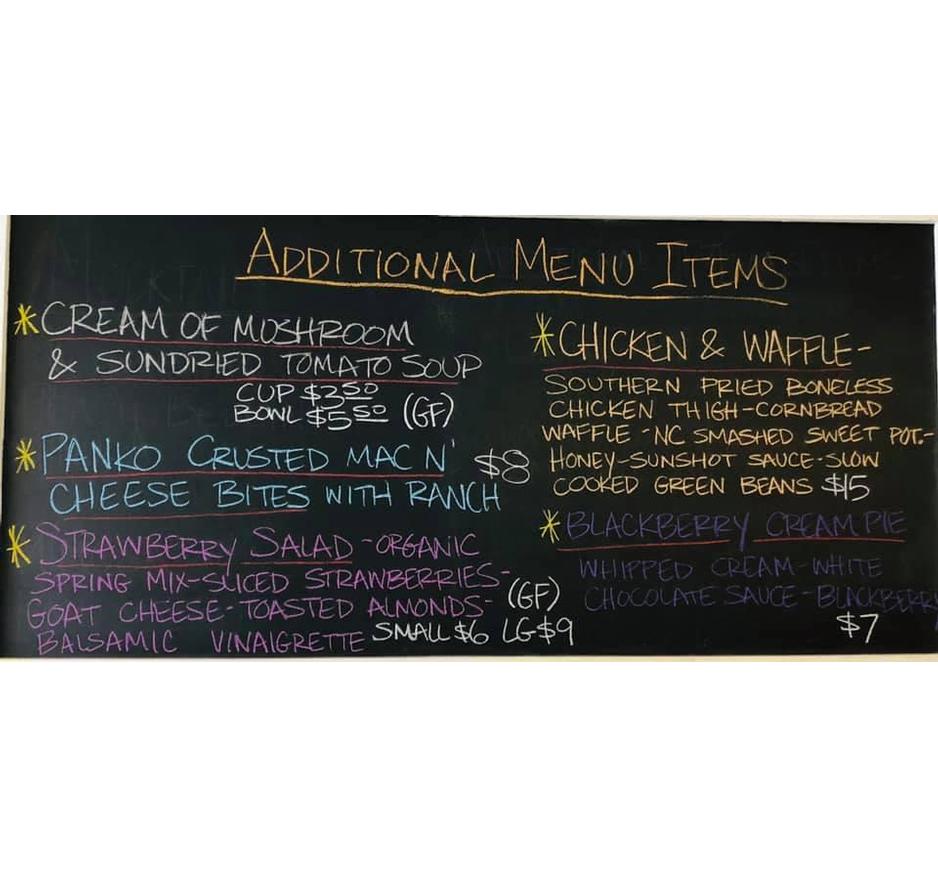 ADDITIONAL MENU ITEMS
*CREAM OF MUSHROOM
& SUNDRIED TOMATO SOUP
CUP $3.50
BOWL $5.50 (GF)
*PANKO CRUSTED MAC N' $8
CHEESE BITES WITH RANCH
*STRAWBERRY SALAD-ORGANIC
SPRING MIX-SLICED STRAWBERRIES-
GOAT CHEESE-TOASTED ALMONDS- (GF)
BALSAMIC VINAIGRETTE SMALL $6 LG $9
*CHICKEN & WAFFLE-
SOUTHERN FRIED BONELESS
CHICKEN THIGH-CORNBREAD
WAFFLE-NC SMASHED SWEET POT.-
HONEY-SUNSHOT SAUCE-SLOW
COOKED GREEN BEANS $15
*BLACKBERRY CREAM PIE
WHIPPED CREAM-WHITE
CHOCOLATE SAUCE-BLACKBERRY
$7